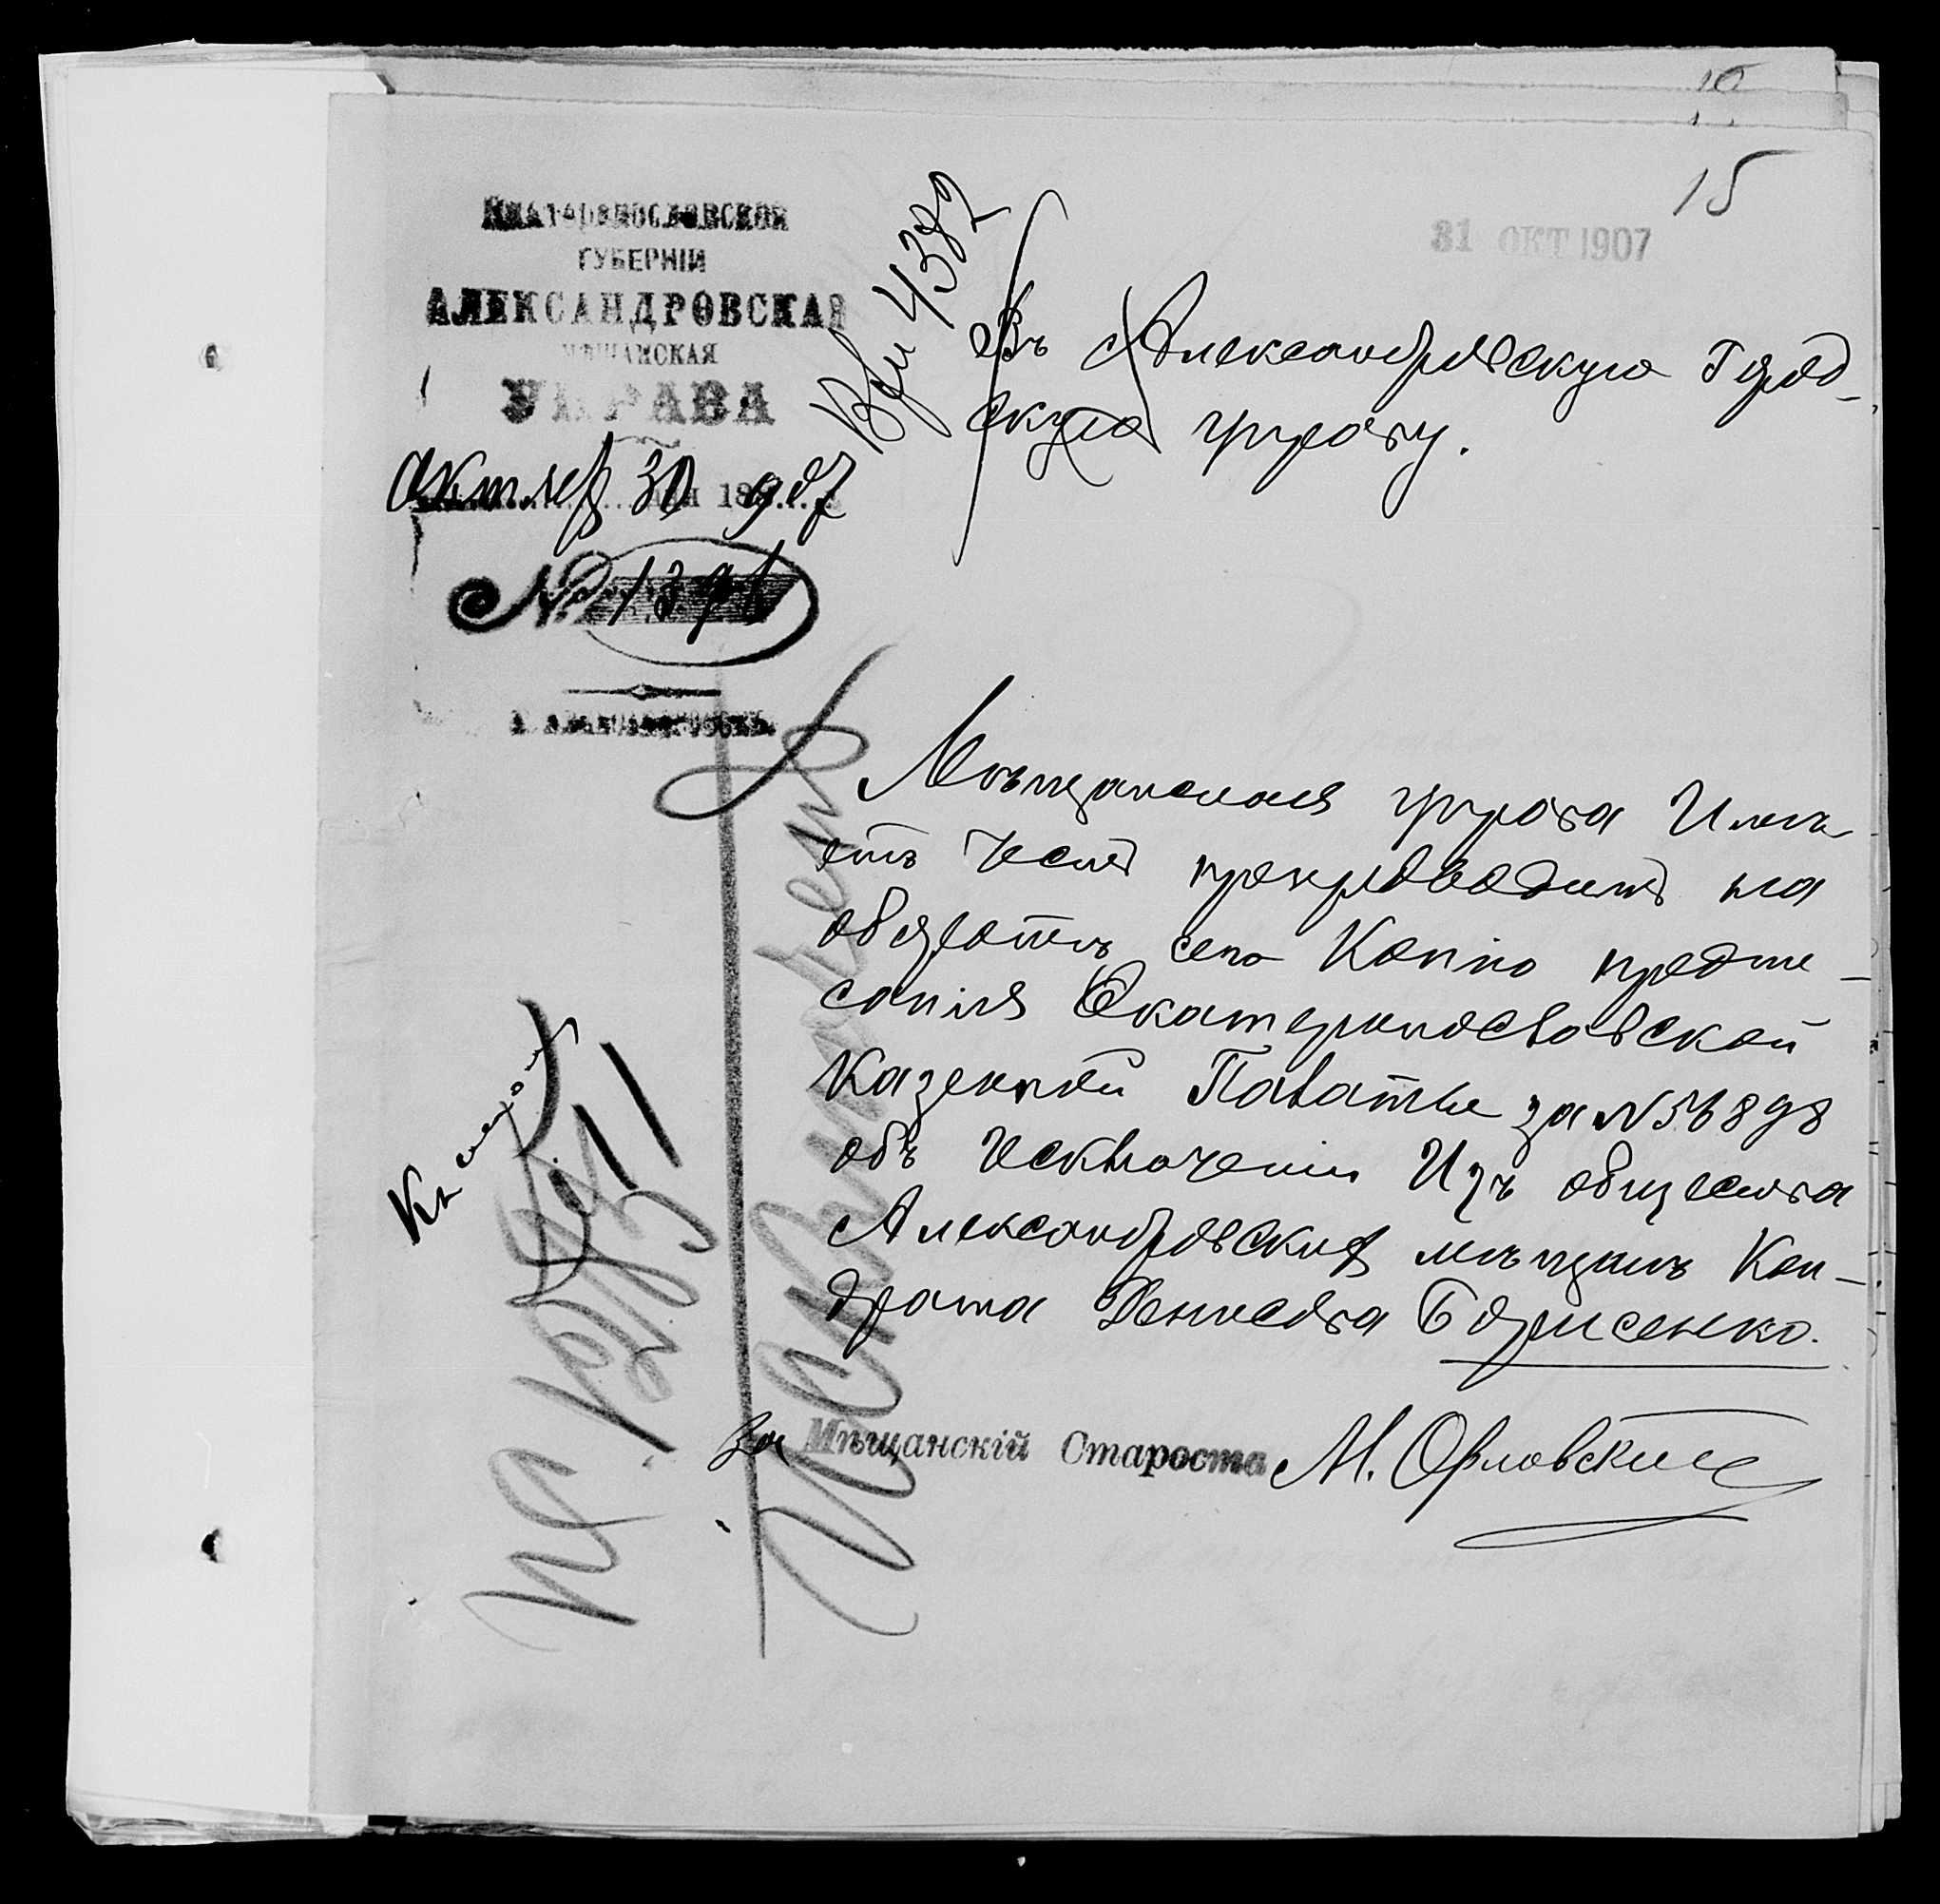 15
31 ОКТ 1907
Екатеринославской
ГУБЕРНІИ
АЛЕКСАНДРОВСКАЯ
МѢЩАНСКАЯ
УПРАВА
Октября 30 дня 1907
№ 1391
Г. АЛЕКСАНДРОВСКЪ.
4382
Въ Александровскую Город-
скую управу.
Мѣщанская управа имѣ-
етъ честь препроводить на
обратѣ сего копію предпи-
санія Екатеринославской
Казенной Палаты за №
объ исключеніи изъ общества
Александровскихъ мѣщанъ Кон-
драта Денисова Борисенко.
За Мѣщанскій Староста М. Орловскій
Исключенъ